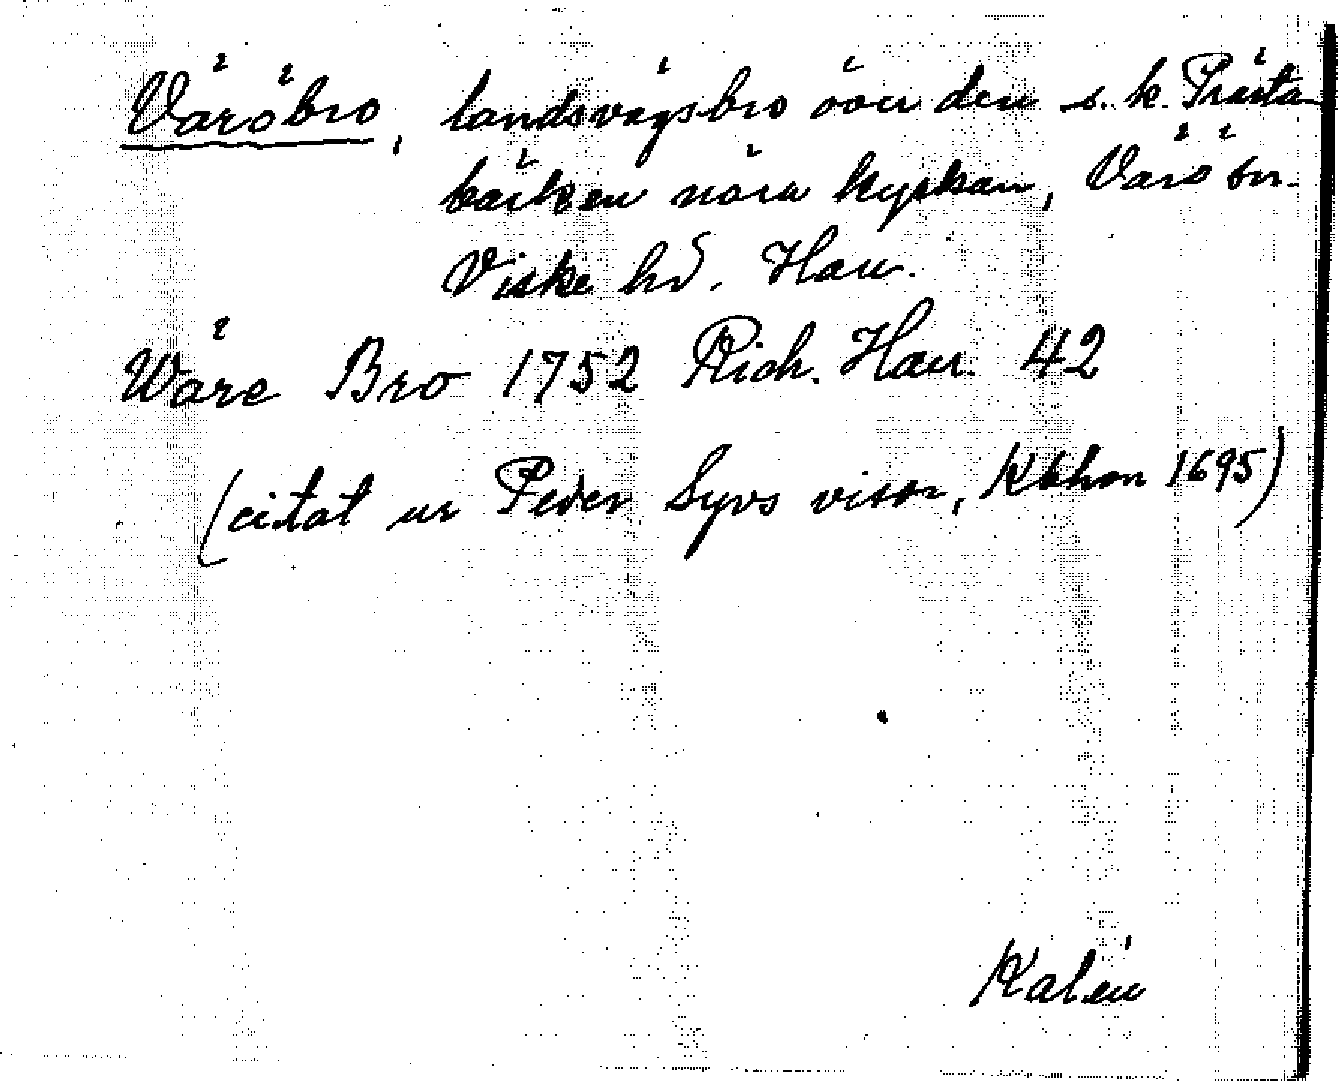 Väröbro, landsvägsbro över den s. k. Prästa
bäcken nära kyrkan, Värö sn.
Viske hd. Hall.
Wäre Bro 1752 Rich. Hall. 42
(citat ur Peder Syvs visor, Kbhvn 1695)
Kalén